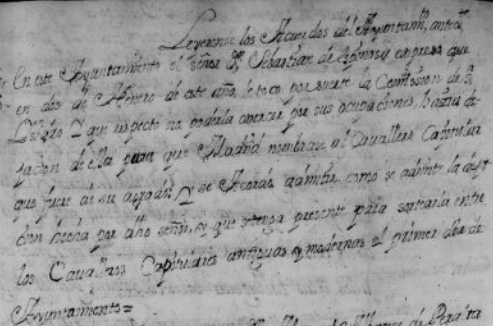 Leyeronse los Acuerdos del Ayuntam.to anteced.te
En este Ayuntamiento el señor D.n Sebastian de espreso que
en dos de Henero de este año, le toco por suerte la Comission de
y que respecto no poderla exercer por sus ocupaciones, hazia de
jacion de ella para que Madrid nombrase al Cavallero Capitular
que fuese de su agrado; Y se Acordo admitir como se admite la
hecha por dho señor, y que se tenga presente para sortearla entre
los Cavalleros Capitulares antiguos y modernos el primer dia de
Ayuntamiento=